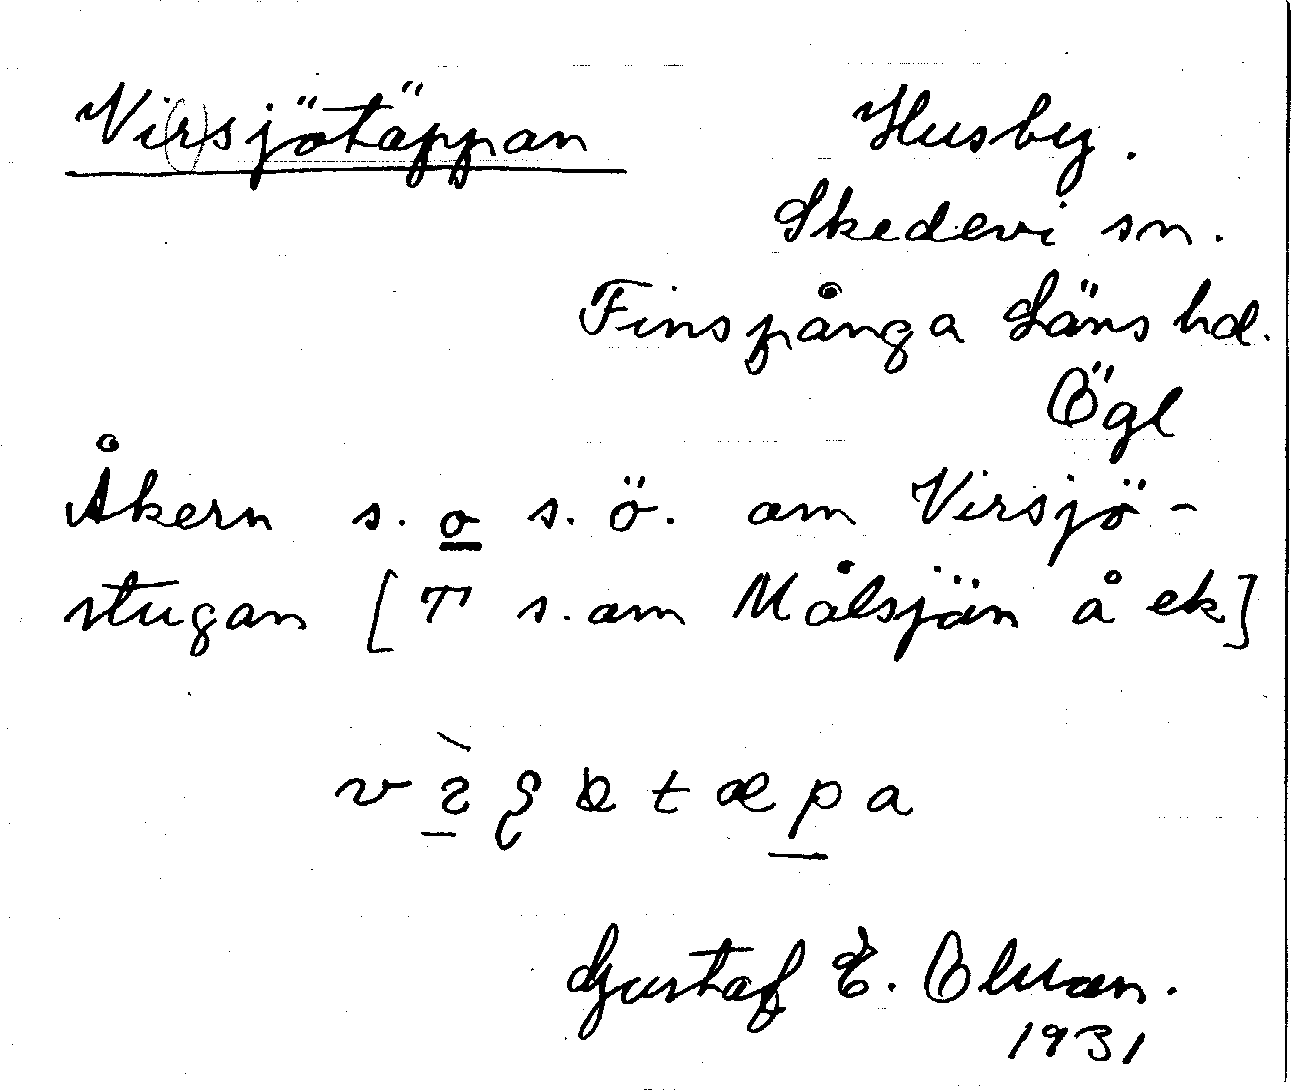 Virsjötäppan
Husby.
Skedevi sn.
Finspånga Läns hd.
Ögl
Åkern s. o s.ö. om Virsjö-
stugan [T s. om Målsjön å ek]
Gustaf E.
1931